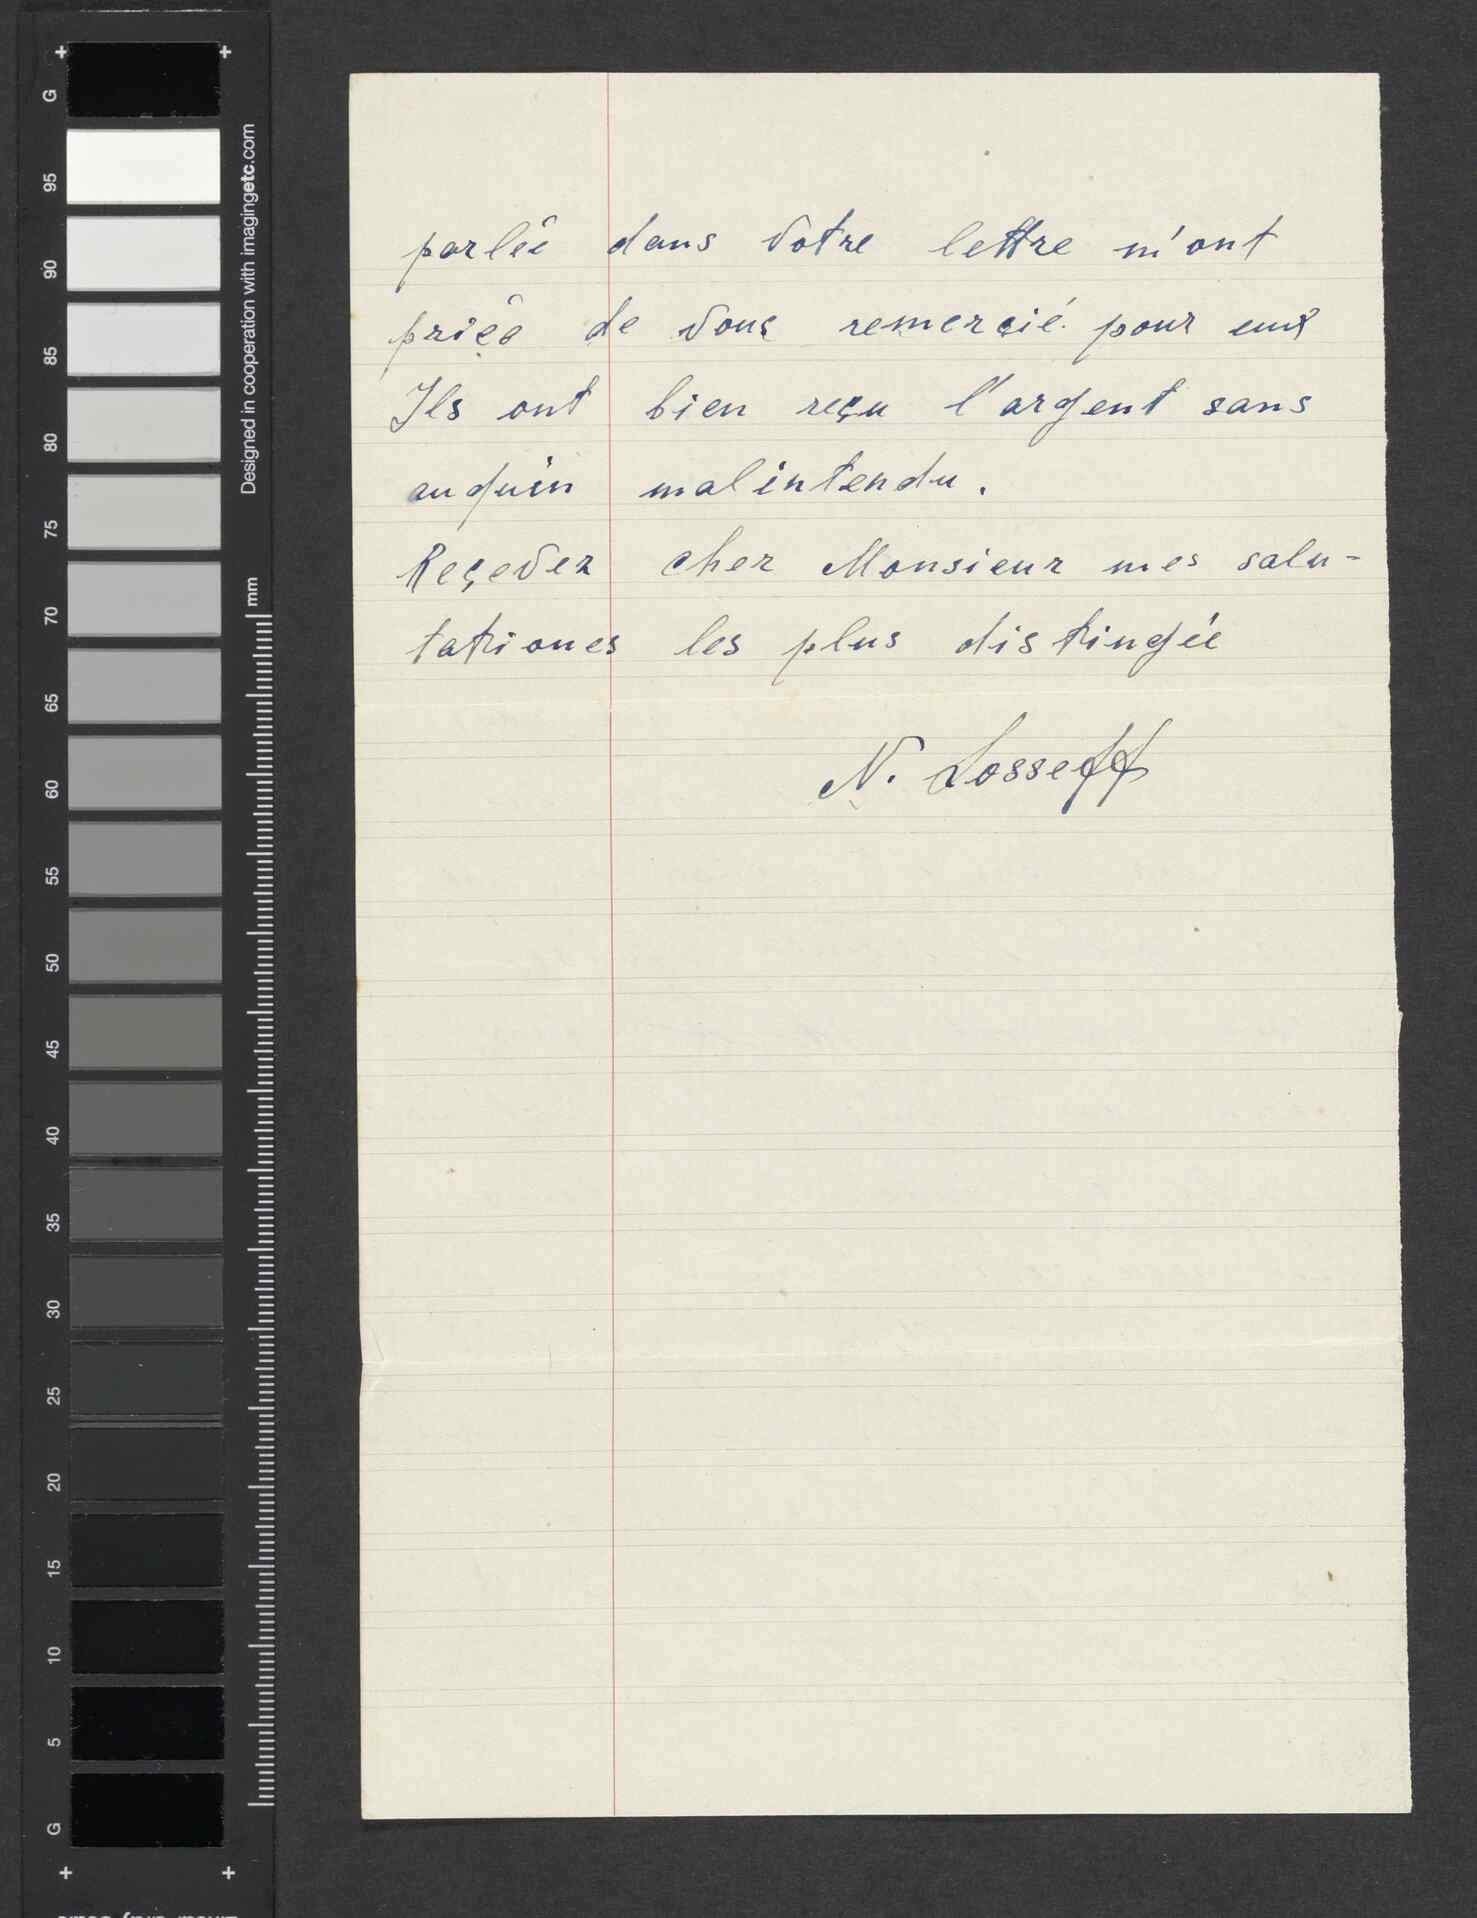 parlée dans votre lettre m'ont
priée de vous remerçié pour eux
Ils ont bien reçu l'argent sans
auquin malintendu.
Reçevez cher Monsieur mes salu-
tationes les plus distingée
N. Losseff
G
95
90
85
80
75
70
65
60
55
50
45
40
35
30
25
20
15
10
5
G
Designed in cooperation with imagingetc.com
mm